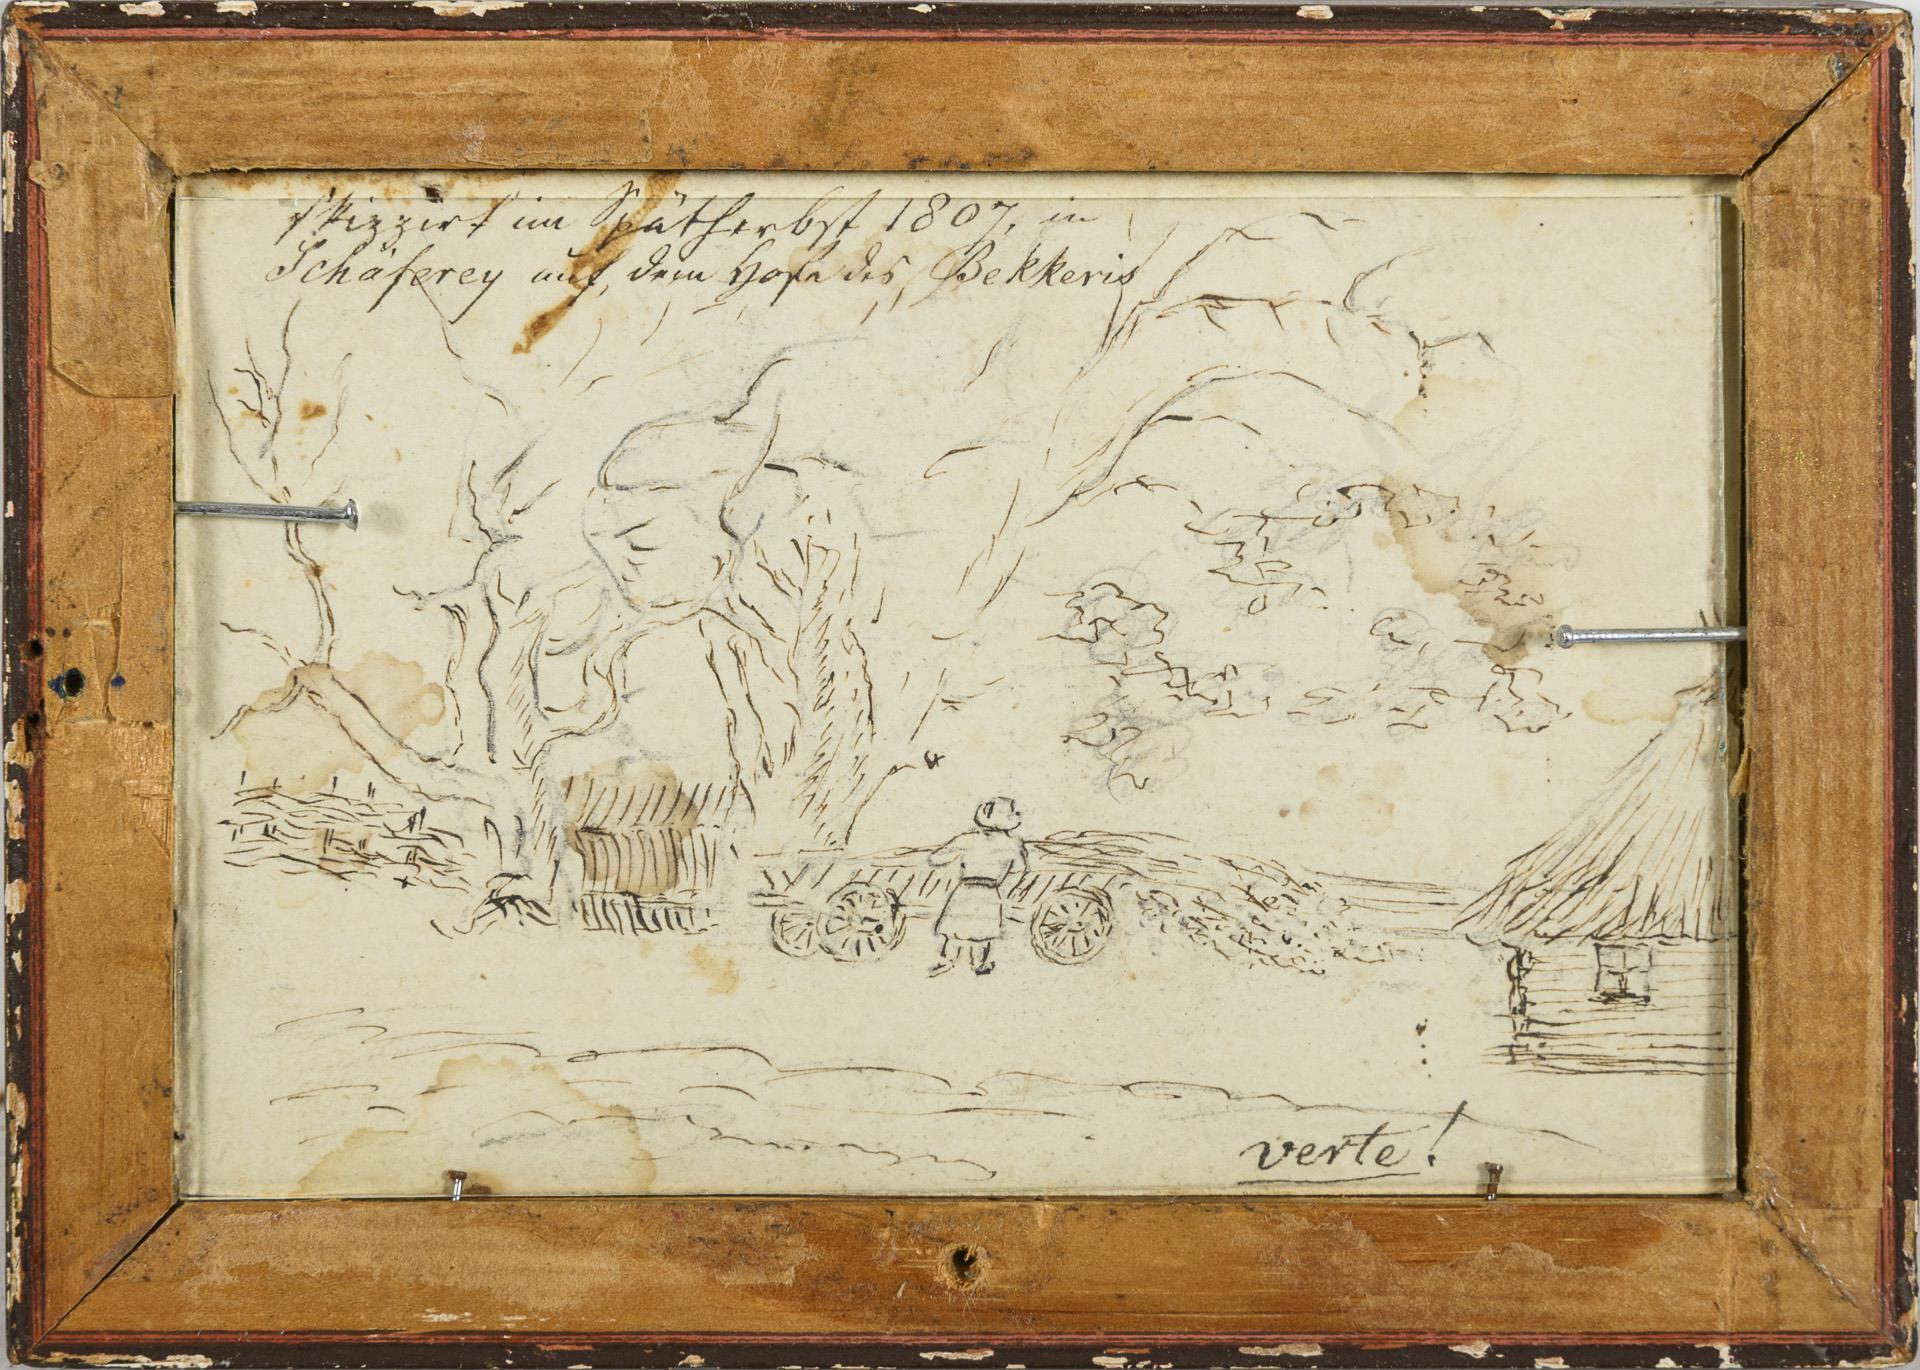 skizzirt im Spätherbst 1807, in
Schäferey auf dem Hofe des Bekkeris
verte!